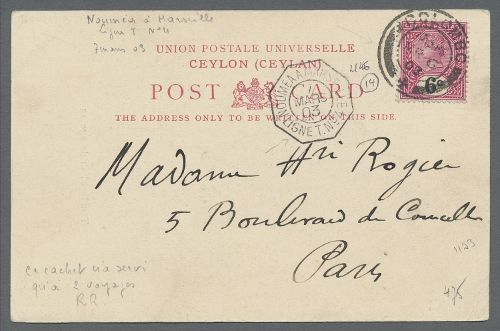 Nouméa à Marseille
Ligne T N°4
7 mars 03
UNION POSTALE UNIVERSELLE
CEYLON (CEYLAN)
POST CARD
THE ADDRESS ONLY TO BE WRITTEN ON THIS SIDE.
COLOMBO
6
NOUMEA A MARSEILLE
MARS
03
LIGNE T. N°4
2146
14
Madame Hri Rogier
5 Boulevard de Courcelles
Paris
1123
ce cachet n'a servi
qu'à 2 voyages
RR
475